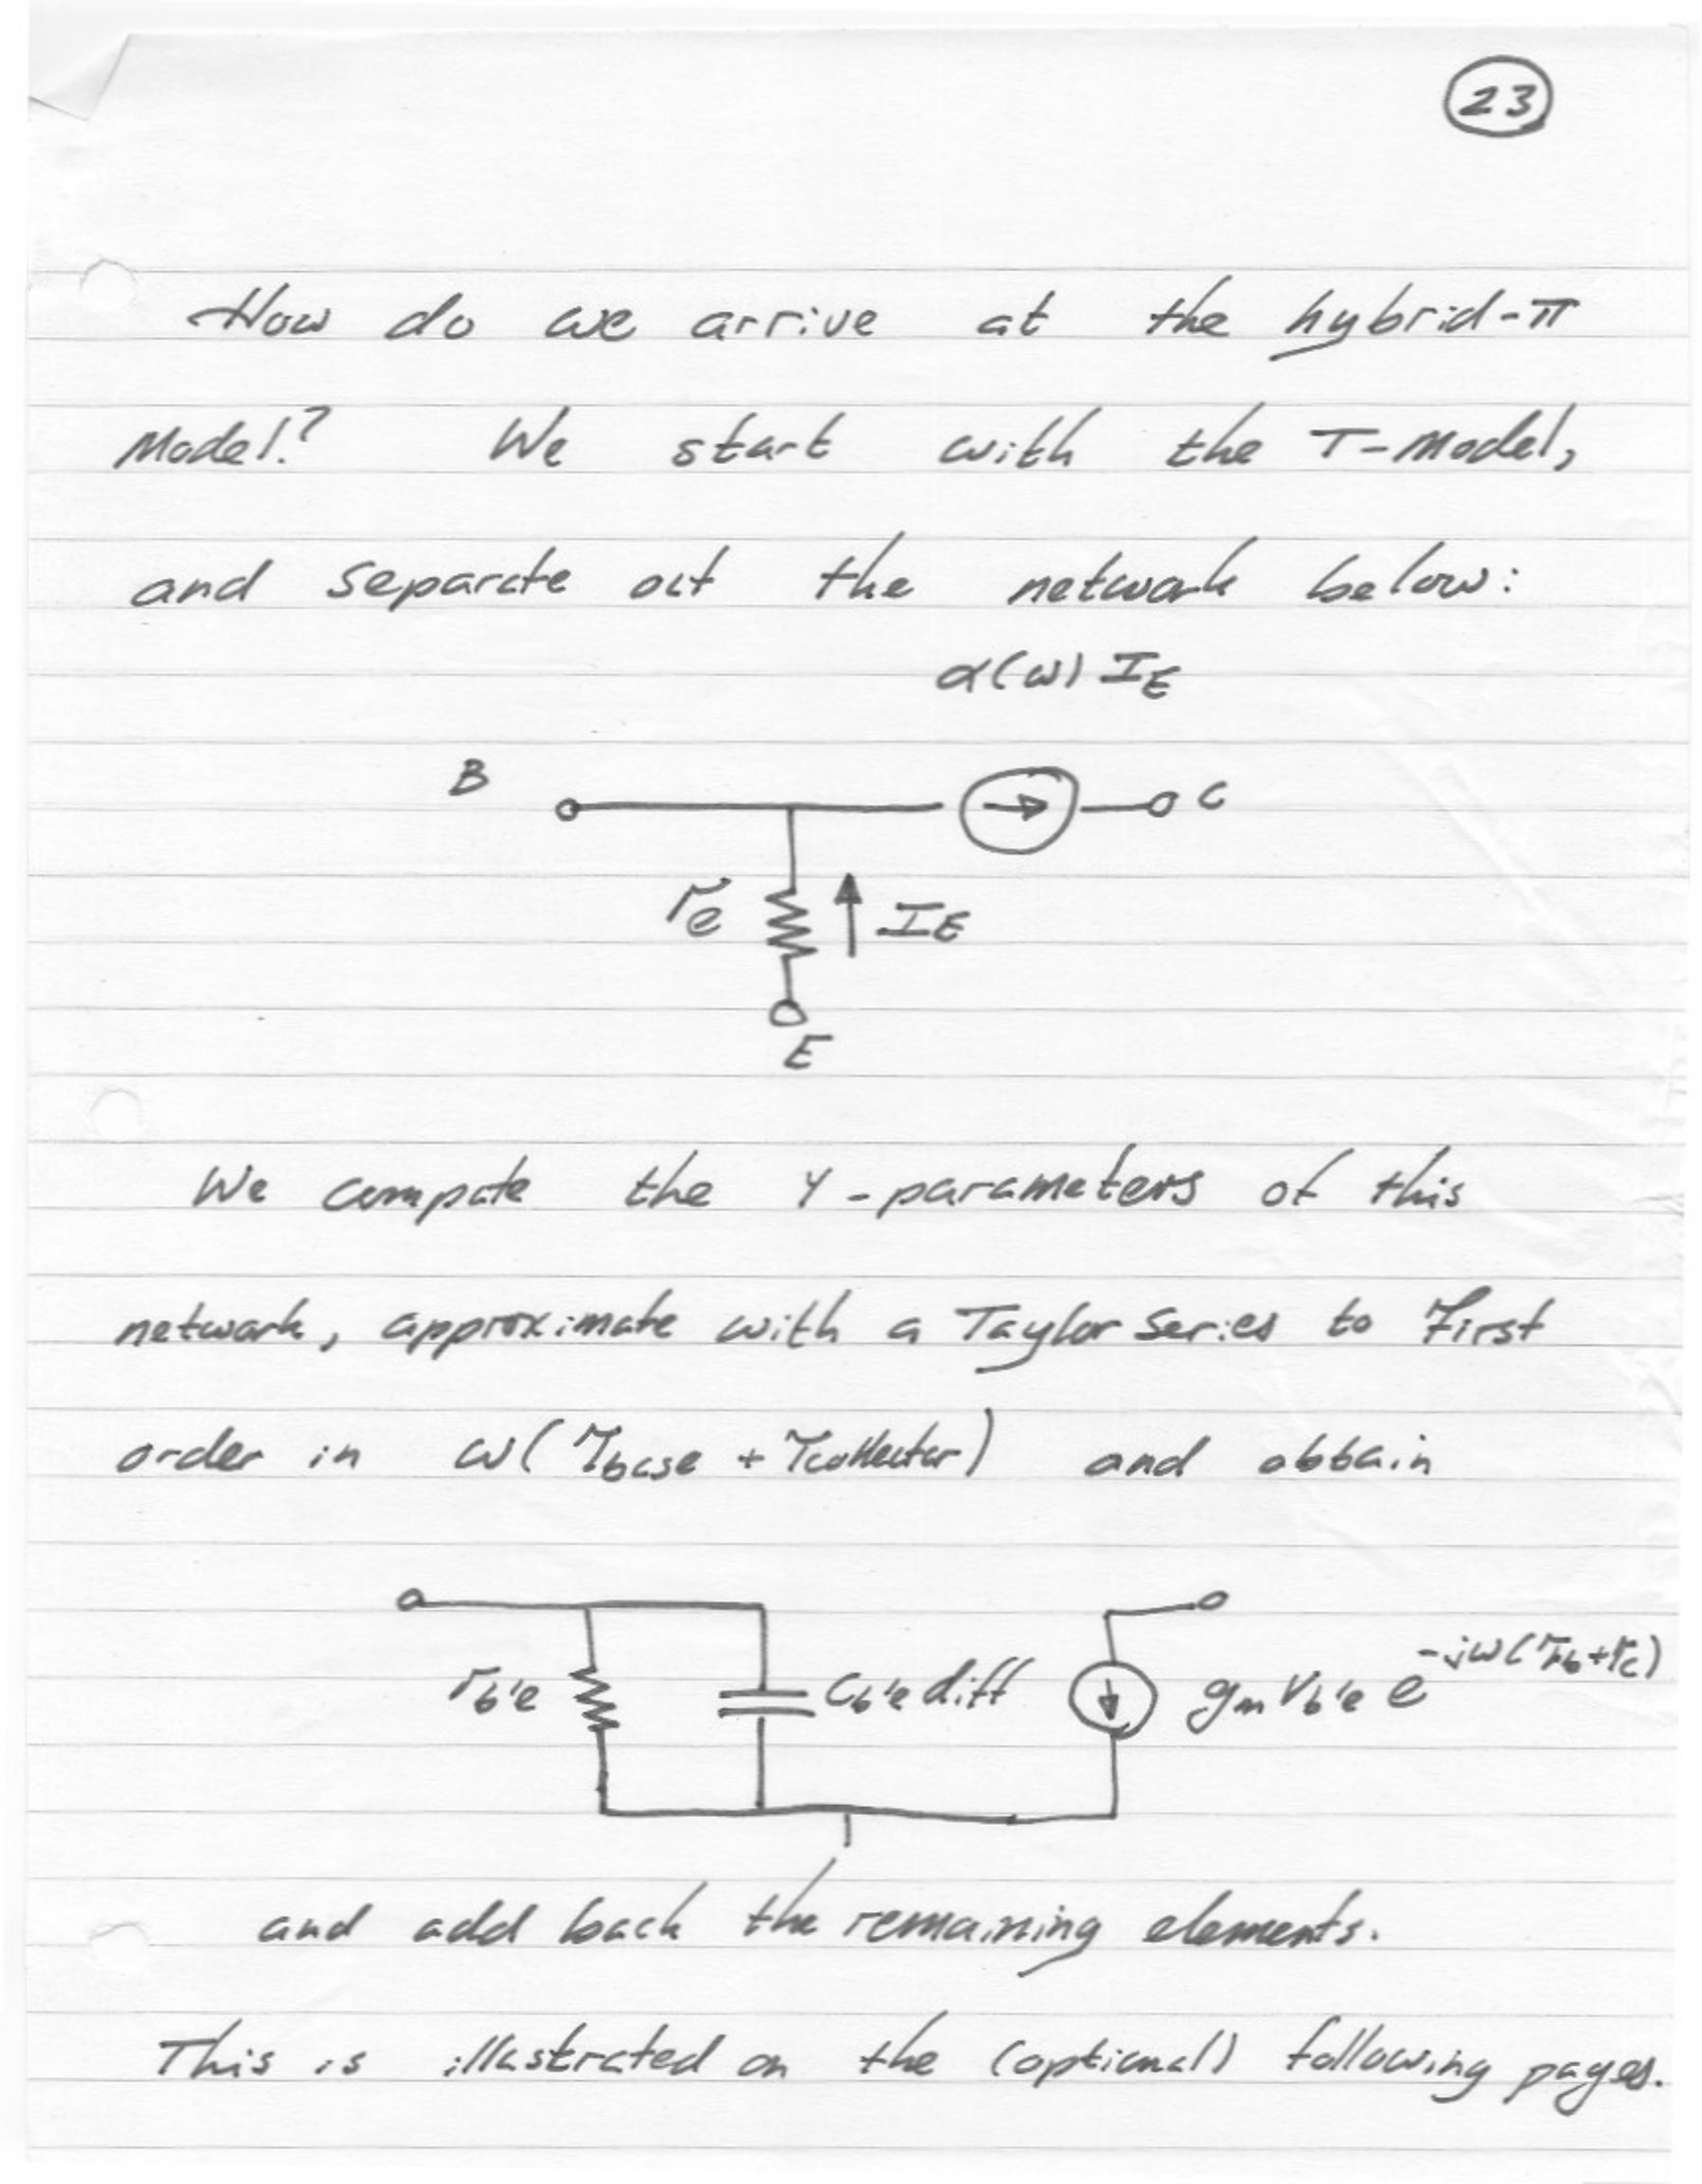 23
How do we arrive at the hybrid-π
Model? We start with the T-Model,
and separate out the network below:
α(ω) I_E
B
C
r_e
I_E
E
We compute the Y-parameters of this
network, approximate with a Taylor Series to First
order in ω(τ_base + τ_collector) and obtain
r_b'e
C_b'e diff
g_m V_b'e e^-jω(τ_b+τ_c)
and add back the remaining elements.
This is illustrated on the (optional) following pages.